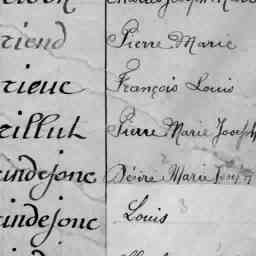 riend Pierre Marie
rieuc François Louis
rillut Pierre Marie Joseph
indejonc Désiré Marie Joseph
indejonc Louis